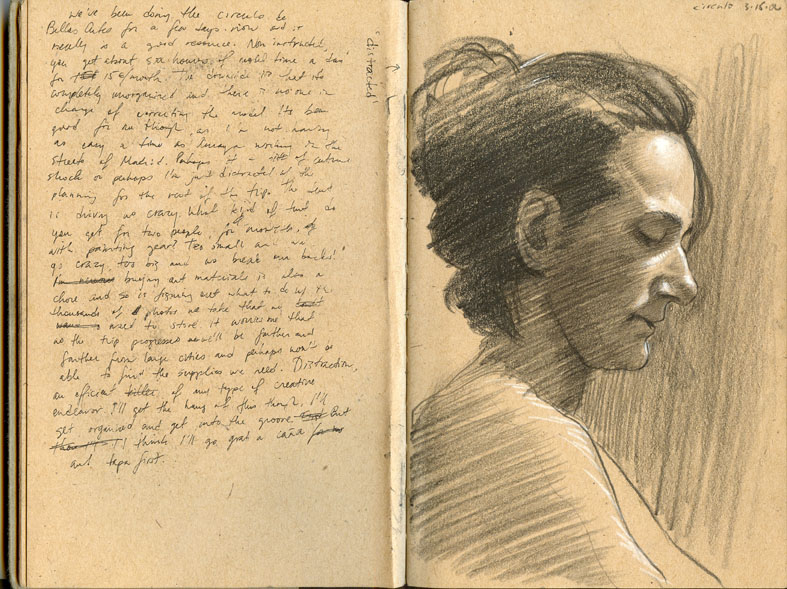 we've been doing the circulo de
Bellas Artes for a few days now and it
really is a good resource. Non instructed,
you get about six hours of model time a day
for 15€/month. The downside is that it's
completely unorganized and there is no one in
charge of correcting the model. Its been
good for me though, as I'm not having
as easy a time as working in the
streets of Madrid. Perhaps it culture
shock or perhaps I'm just distracted w/ the
planning for the rest of the trip. The tent
is driving us crazy. What kind of tent do
you get for two people, for months,
with painting gear? Too small and we
go crazy, too big and we break our backs!
buying art materials is also a
chore and so is figuring out what to do w/ the
thousands of photos we take that we
need to store. it worries me that
as the trip progresses we'll be farther and
farther from large cities and perhaps won't be
able to find the supplies we need. Distraction,
an efficient killer of any type of creative
endeavor. I'll get the hang of this though. I'll
get organized and get into the groove. But
I think I'll go grab a caña
and tapa first.
"distracted"
circulo 3-16-06